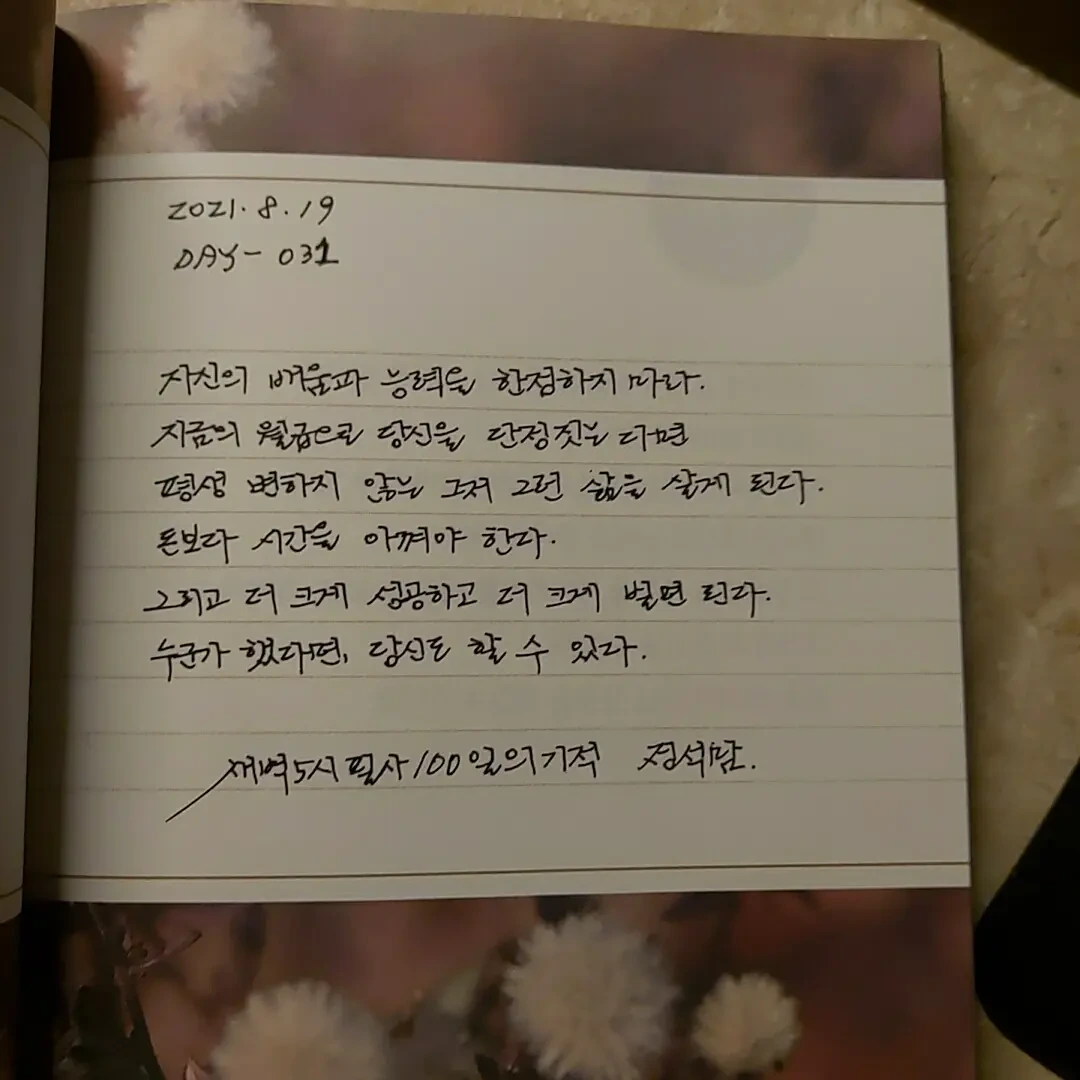 2021. 8. 19
DAY - 031
자신의 배움과 능력을 한정하지 마라.
지금의 월급으로 당신을 단정짓는 다면
평생 변하지 않는 그저 그런 삶을 살게 된다.
돈보다 시간을 아껴야 한다.
그리고 더 크게 성공하고 더 크게 벌면 된다.
누군가 했다면, 당신도 할 수 있다.
새벽 5시 필사 100일의 기적